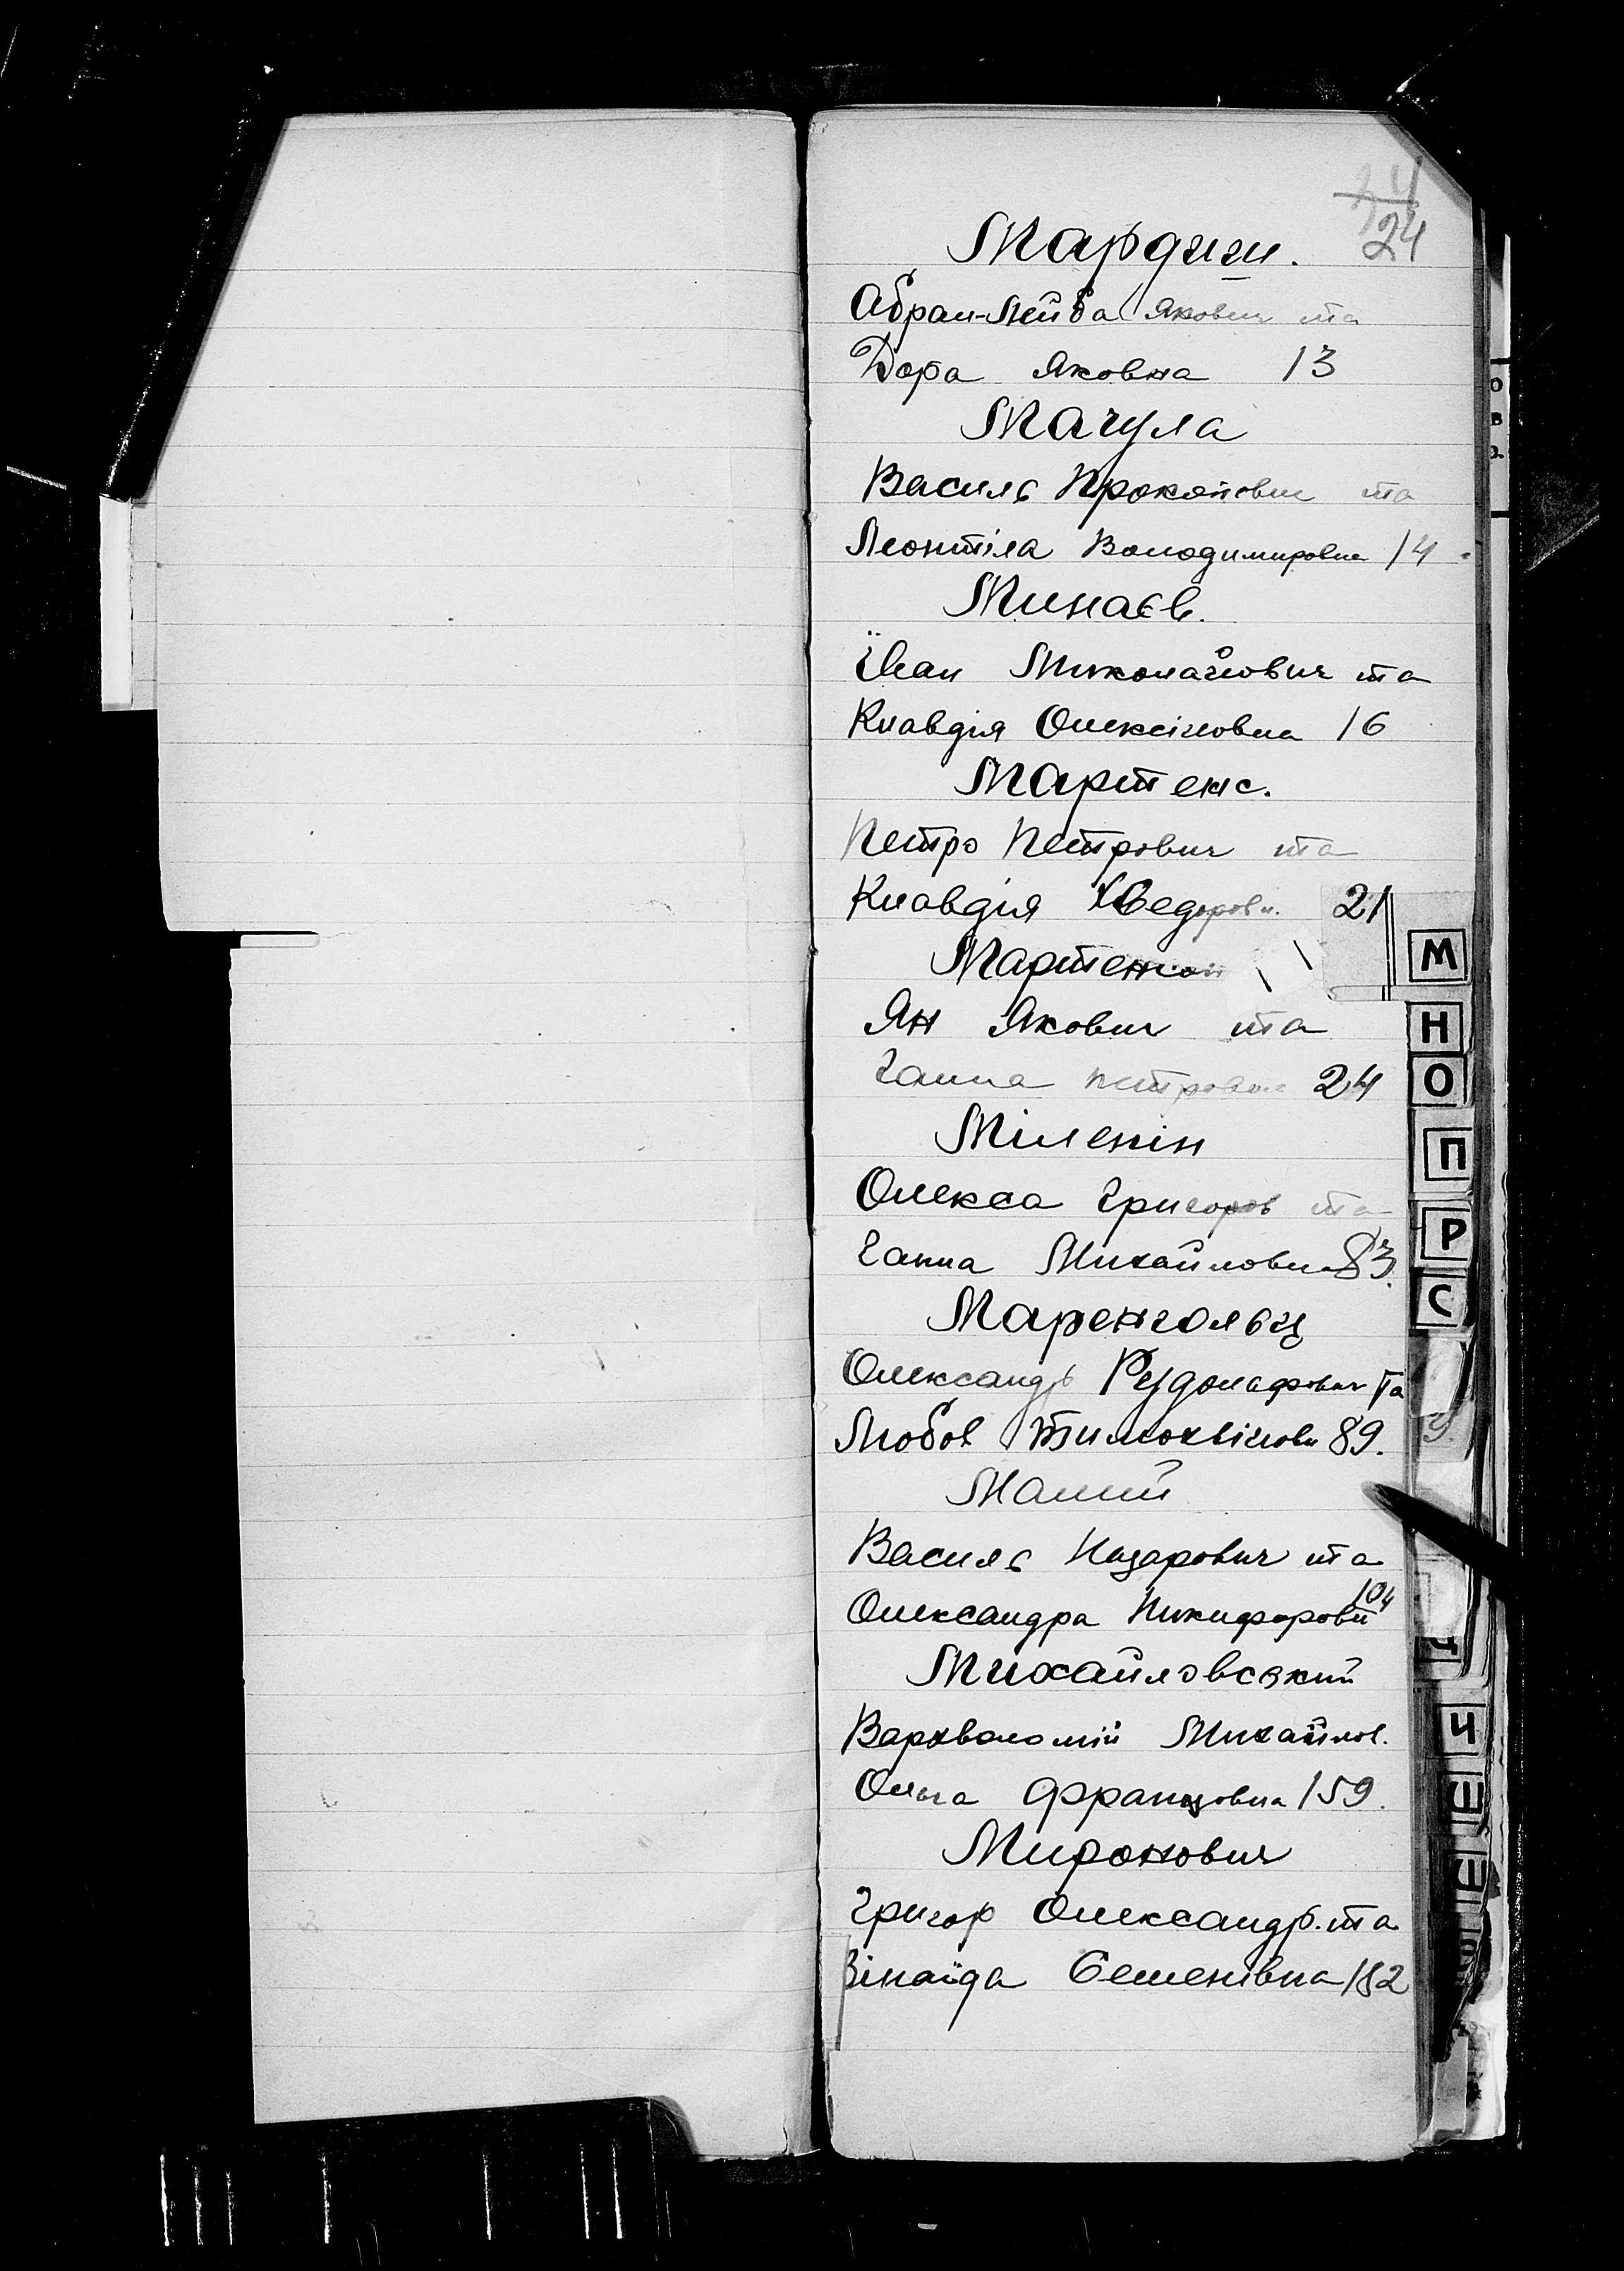 24
24
Мардиш.
Абрам-Лейба Якович та
Дора Яковна 13
Мачула
Василь Прокопович та
Леонтіла Володимировна 14
Минаєв.
Іван Миколайович та
Клавдія Олексійовна 16
Мартенс.
Петро Петрович та
Клавдія Хведоровн. 21
Мартенсон
Ян Якович та
Ганна Петровна 24
Міленін
Олекса Григоров та
Ганна Михайловна 83.
Маренгольц
Олександр Рудольфович та
Любов Тимохвійовн 89.
Малий
Василь Назарович та
Олександра Никифоровн 104
Михайловський
Вархволомій Михайлов.
Ольга Францовна 159.
Миронович
Григор Олександр. та
Зінаїда Семенівна 182
М
Н
О
П
Р
С
Ч